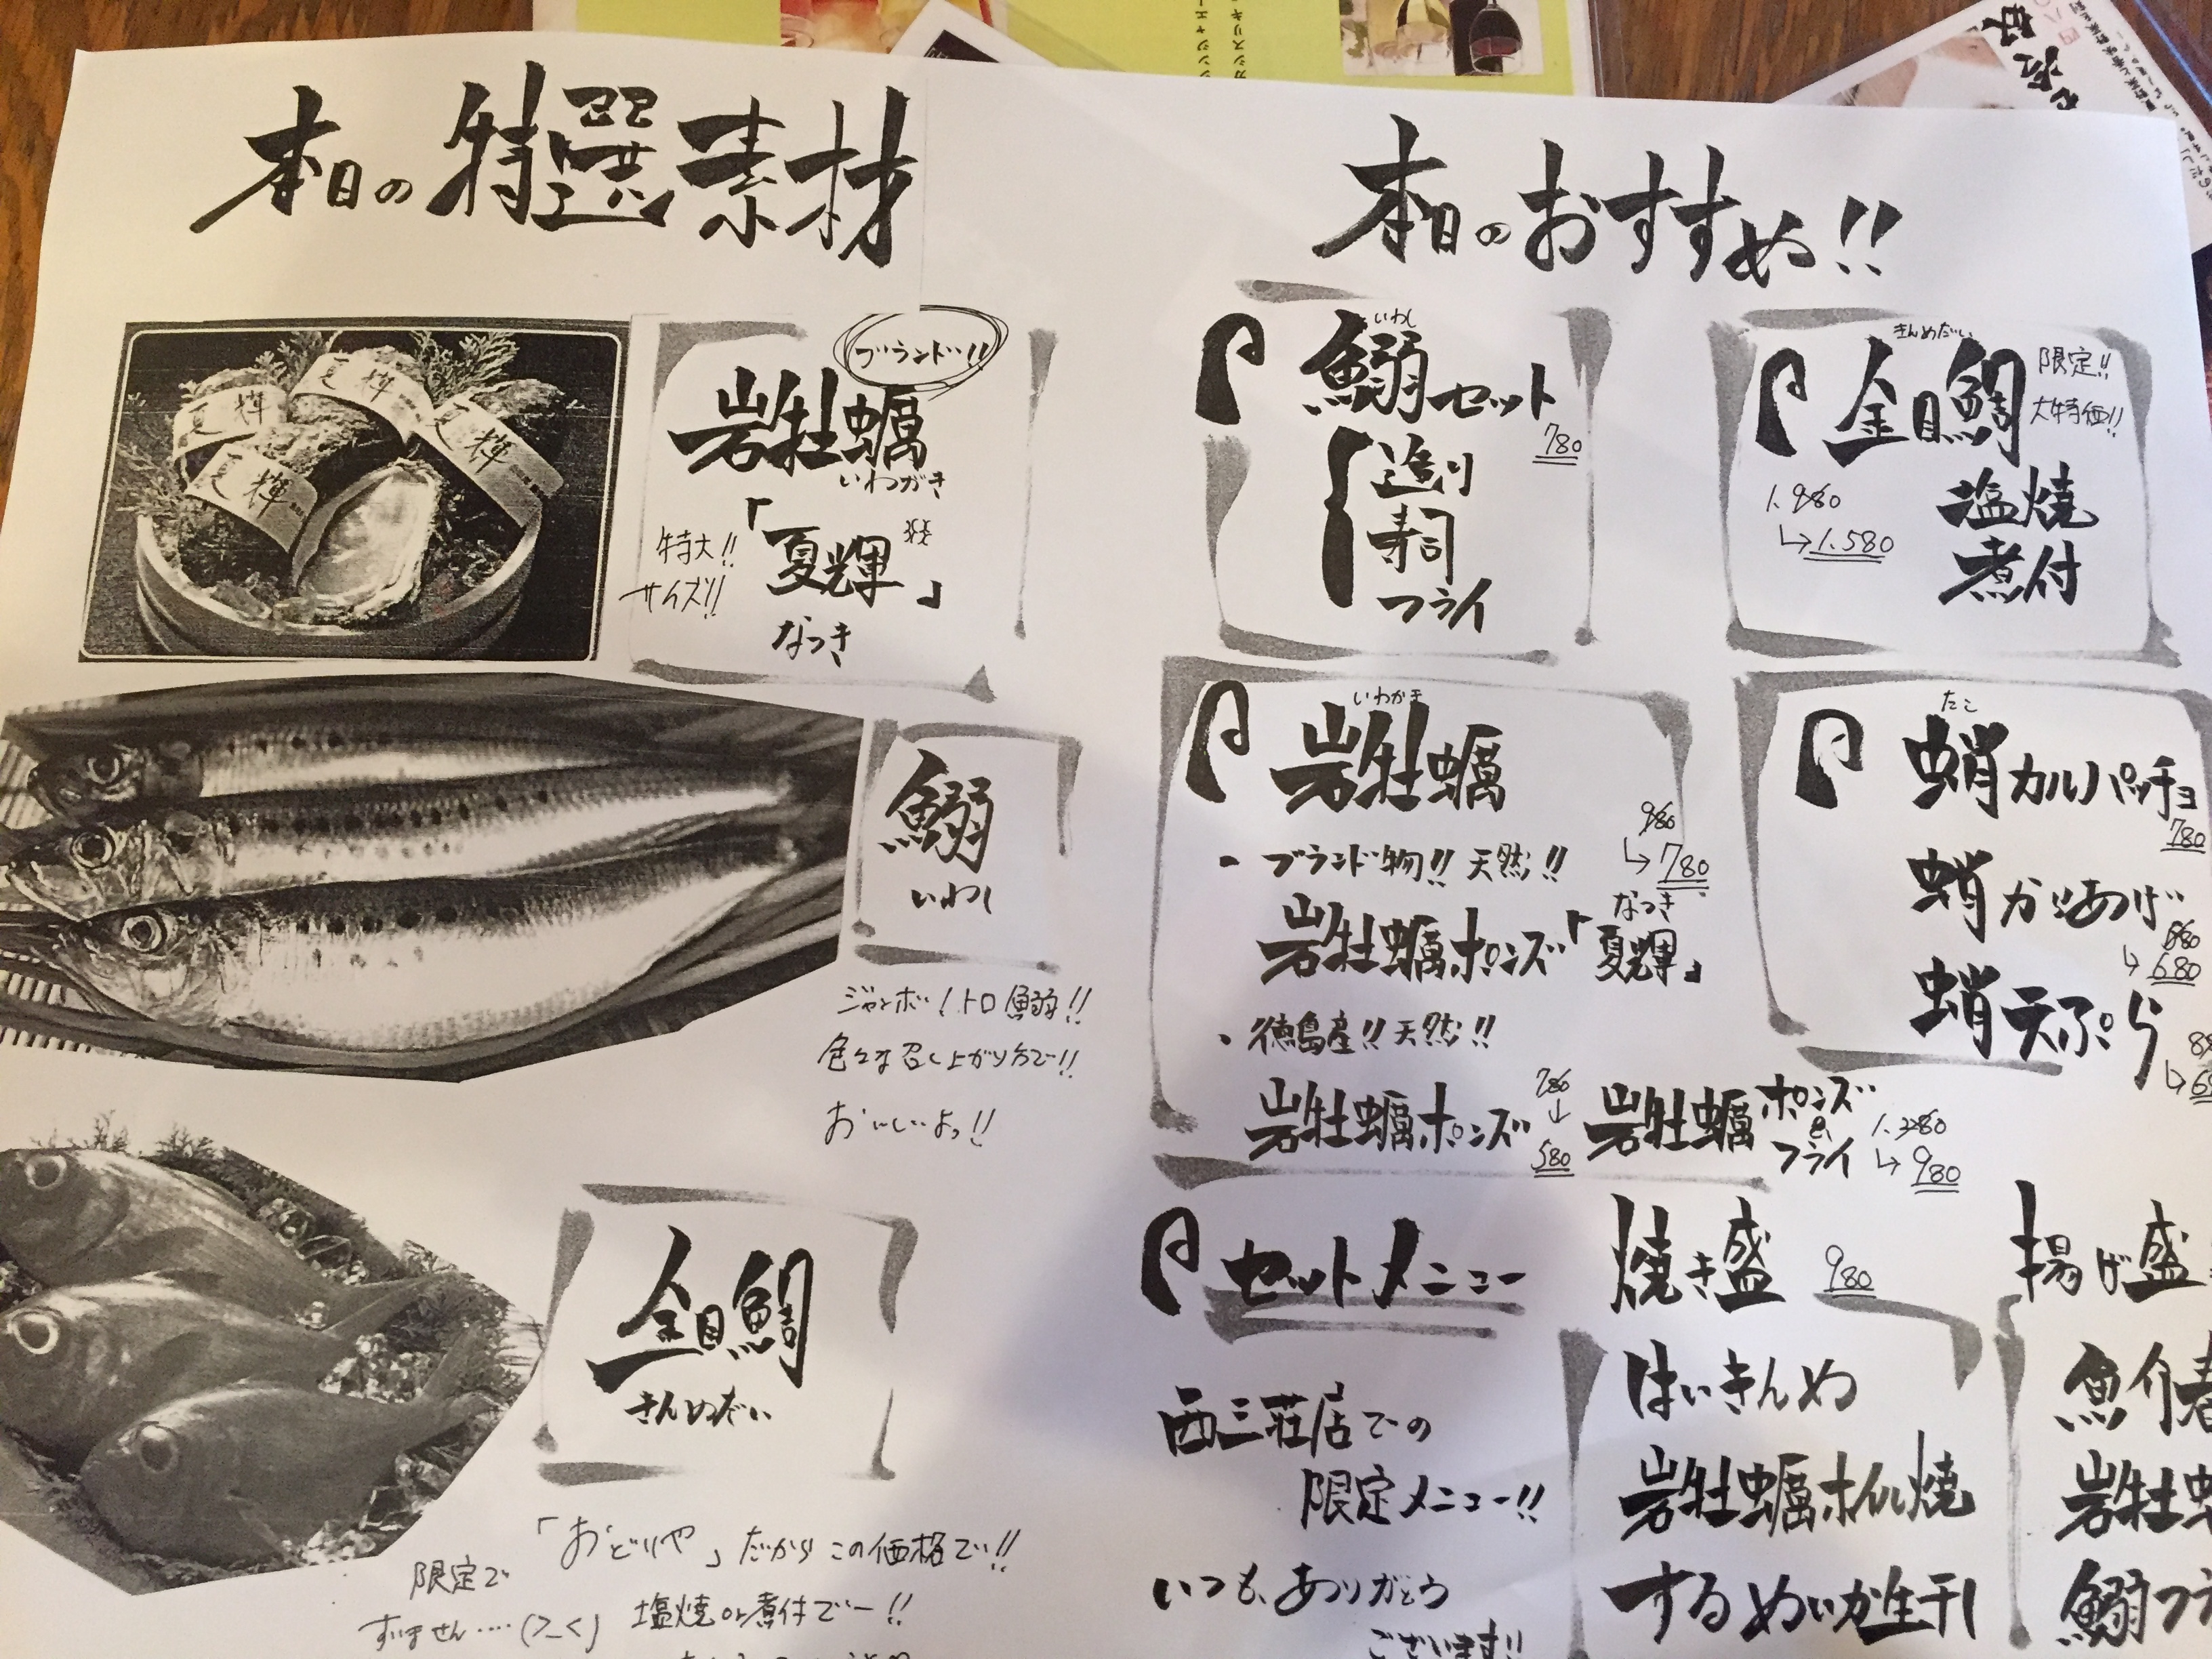 本日の特選素材
ブランド!!
岩牡蠣
いわがき
特大!!
サイズ!!
「夏輝」
なつき
夏輝
夏輝
夏輝
夏輝
鰯
いわし
ジャンボ!トロ鰯!!
色々な召し上がり方で!!
おいしいよっ!!
金目鯛
きんめだい
「おどりや」だからこの価格で!!
限定で
すいません‥‥(>_<)
塩焼or煮付でー!!
本日のおすすめ!!
いわし
鰯セット
780
造り
寿司
フライ
きんめだい
金目鯛
限定!!
大特価!!
1.980
↳1.580
塩焼
煮付
いわがき
岩牡蠣
・ブランド物!!天然!!
980
↳780
なつき
岩牡蠣ポンズ「夏輝」
・徳島産!!天然!!
岩牡蠣ポンズ
780
↓
580
岩牡蠣ポンズ
&
フライ
↳980
たこ
蛸カルパッチョ
780
蛸からあげ
↳680
蛸天ぷら
セットメニュー
西三荘店での
限定メニュー!!
いつも、ありがとう
ございます!!
焼き盛
980
はいきんめ
岩牡蠣ホイル焼
するめいか生干し
揚げ盛
魚介
岩牡
鰯フラ